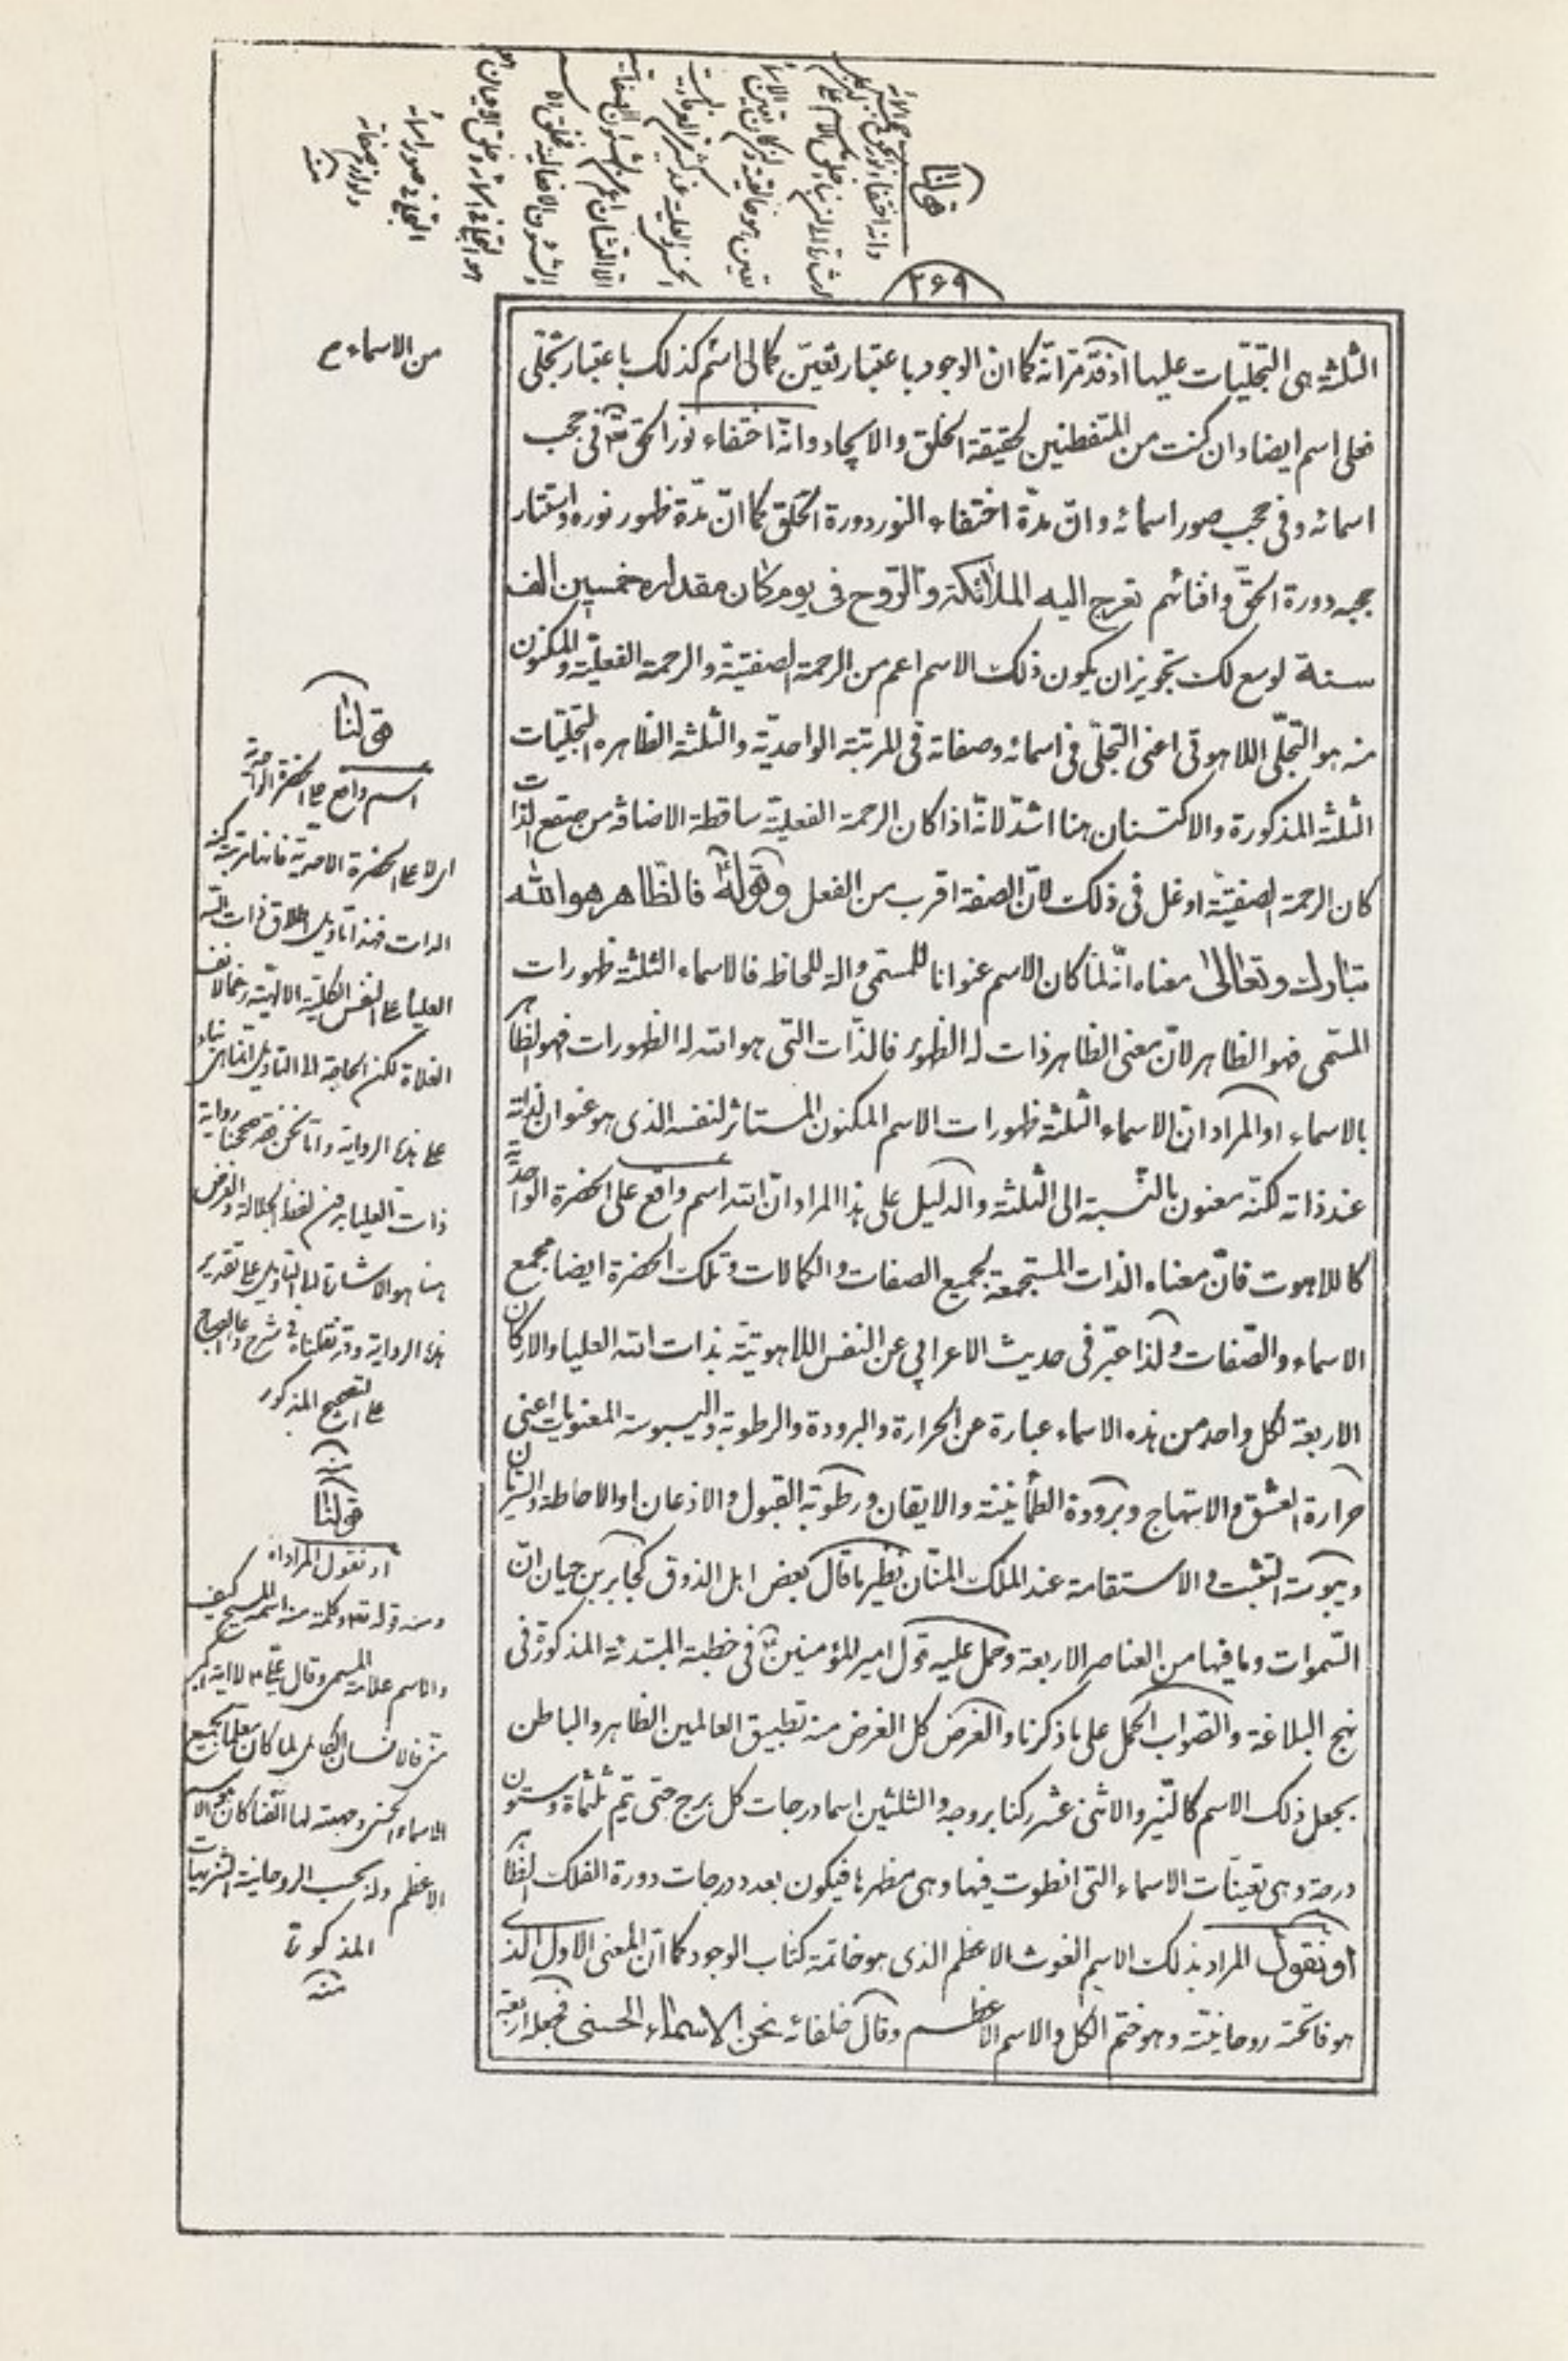 قولنا
وانه اختفاء نور الحق
۲۶۹
من الاسماء م
الثلثة هى التجليات عليها اذ قد مر انه كما ان الوجود باعتبار تعين كمالى اسم كذلك باعتبار تجلى
فعلى اسم ايضا وان كنت من المتفطنين لحقيقة الخلق والايجاد وانه اختفاء نور الحق تع فى حجب
اسمائه وفى حجب صور اسمائه وان مدة اختفاء النور دورة الخلق كما ان مدة ظهور نوره واستتار
حجبه دورة الحق وافنائهم تعرج اليه الملائكة والروح فى يوم كان مقداره خمسين الف
سنة لوسع لك تجويز ان يكون ذلك الاسم اعم من الرحمة الصفتية والرحمة الفعلية والمكنون
منه هو التجلى اللاهوتى اعنى التجلى فى اسمائه وصفاته فى المرتبة الواحدية والثلثة الظاهره التجليات
الثلثة المذكورة والاكتنان هنا اشد لانه اذا كان الرحمة الفعلية ساقطة الاضافة من صقع الذات
كان الرحمة الصفتية اوغل فى ذلك لان الصفة اقرب من الفعل وقوله ع فالظاهر هو الله
تبارك وتعالى معناه انه لما كان الاسم عنوانا للمسمى والة للحاظه فالاسماء الثلثة ظهورات
المسمى فهو الظاهر لان معنى الظاهر ذات له الظهور فالذات التى هو الله له الظهورات فهو الظاهر
بالاسماء او المراد ان الاسماء الثلثة ظهورات الاسم المكنون المستاثر لنفسه الذى هو عنوان لذاته
عند ذاته لكنه معنون بالنسبة الى الثلثة والدليل على هذا المراد ان الله اسم واقع على الحضرة الواحدية
كاللاهوت فان معناه الذات المستجمعة لجميع الصفات والكمالات وتلك الحضرة ايضا مجمع
الاسماء والصفات ولذا عبر فى حديث الاعرابي عن النفس اللاهوتية بذات الله العليا والاركان
الاربعة لكل واحد من هذه الاسماء عبارة عن الحرارة والبرودة والرطوبة واليبوسة المعنويات اعنى
حرارة العشق والابتهاج وبرودة الطمأنينة والايقان ورطوبة القبول والاذعان او الاحاطة والسريان
ويبوسة التثبت والاستقامة عند الملك المنان نظير ما قال بعض اهل الذوق كجابر بن حيان ان
السموات وما فيها من العناصر الاربعة وحمل عليه قول امير المؤمنين ع فى خطبة المبتدئة المذكورة فى
نهج البلاغة والصواب الحمل على ما ذكرنا والغرض كل الغرض منه تطبيق العالمين الظاهر والباطن
بجعل ذلك الاسم كالنير والاثنى عشر ركنا بروجه والثلثين اسما درجات كل برج حتى يتم ثلثمأة وستون
درجة وهى تعينات الاسماء التى انطوت فيها وهى مظهرها فيكون بعدد درجات دورة الفلك الظاهر
او نقول المراد بذلك الاسم الغوث الاعظم الذى هو خاتمة كتاب الوجود كما ان المعنى الاول الذى
هو فاتحته روحانيته وهو ختم الكل والاسم الاعظم وقال خلفائه نحن الاسماء الحسنى فجعله اربعة
قولنا
اسم واقع على الحضرة الواحدية
اى لا على الحضرة الاحدية فانها مرتبة كنه
العليا على النفس الكلية الالهية
الغلاة لكن الحاجة الى التاويل
على هذه الرواية
هنا هو الاشارة الى التاويل على تقدير
هذه الرواية وقد نقلناه فى شرح دعاء الصباح
على التصحيح المذكور
منه
قولنا
او نقول المراد اه
ومنه قوله تع وكلمة منه اسمه المسيح كيف
والاسم علامة المسمى وقال على ع لا اية اكبر
منى فالانسان الكامل لما كان معلما بجميع
الاسماء الحسنى
الاعظم
المذكورة
منه